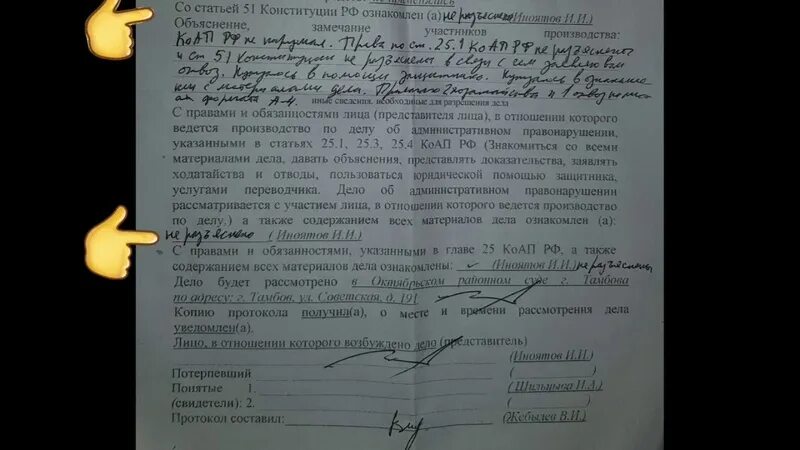 Со статьей 51 Конституции РФ ознакомлен (а) не разъяснено (Иноятов И.И.)
Объяснение, замечание участников производства:
КоАП РФ не нарушал. Права по ст. 25.1 КоАП РФ не разъяснены
и ст 51 Конституции не разъяснены в связи с чем заявляю вам
отвод. Нуждаюсь в помощи защитника. Нуждаюсь в
с материалами дела. 2 ходатайства и 1 отвод на
формата А-4. иные сведения, необходимые для разрешения дела
С правами и обязанностями лица (представителя лица), в отношении которого
ведется производство по делу об административном правонарушении,
указанными в статьях 25.1, 25.3, 25.4 КоАП РФ (Знакомиться со всеми
материалами дела, давать объяснения, представлять доказательства, заявлять
ходатайства и отводы, пользоваться юридической помощью защитника,
услугами переводчика. Дело об административном правонарушении
рассматривается с участием лица, в отношении которого ведется производство
по делу.) а также содержанием всех материалов дела ознакомлен (а):
не разъяснено (Иноятов И.И.)
С правами и обязанностями, указанными в главе 25 КоАП РФ, а также
содержанием всех материалов дела ознакомлены: (Иноятов И.И.) не разъяснены
Дело будет рассмотрено в Октябрьском районном суде г. Тамбова
по адресу: г. Тамбов, ул. Советская, д. 191
Копию протокола получил(а), о месте и времени рассмотрения дела
уведомлен(а).
Лицо, в отношении которого возбуждено дело (представитель)
(Иноятов И.И.)
Потерпевший ( )
Понятые 1. (Шильцова И.А.)
(свидетели): 2. ( )
Протокол составил: (Жебылев В.И.)